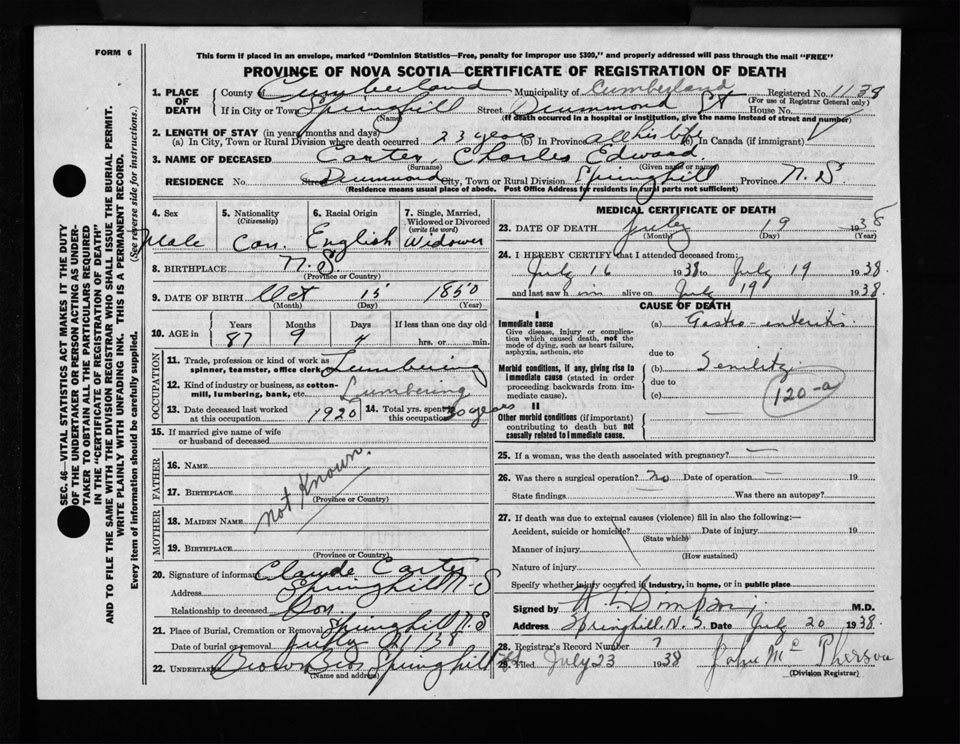 FORM 6
This form if placed in an envelope, marked "Dominion Statistics—Free, penalty for improper use $300," and properly addressed will pass through the mail "FREE"
PROVINCE OF NOVA SCOTIA—CERTIFICATE OF REGISTRATION OF DEATH
1. PLACE OF DEATH
County of Cumberland Municipality of Cumberland Registered No. 1138
(For use of Registrar General only)
If in City or Town Springhill Street Drummond St House No.
(Name) (If death occurred in a hospital or institution, give the name instead of street and number)
2. LENGTH OF STAY (in years, months and days)
(a) In City, Town or Rural Division where death occurred 23 years (b) In Province all his life (c) In Canada (if immigrant)
3. NAME OF DECEASED Carter, Charles Edward
(Surname) (Given name or names)
RESIDENCE No. Street Drummond City, Town or Rural Division Springhill Province N.S.
(Residence means usual place of abode. Post Office Address for residents in rural parts not sufficient)
4. Sex 5. Nationality (Citizenship) 6. Racial Origin 7. Single, Married, Widowed or Divorced (write the word)
Male Can. English Widower
8. BIRTHPLACE N.S.
(Province or Country)
9. DATE OF BIRTH Oct 15 1850
(Month) (Day) (Year)
10. AGE in Years Months Days If less than one day old
87 9 4 hrs. or min.
OCCUPATION
11. Trade, profession or kind of work as spinner, teamster, office clerk, Lumbering
12. Kind of industry or business, as cotton-mill, lumbering, bank, etc. Lumbering
13. Date deceased last worked at this occupation 1920 14. Total yrs. spent in this occupation 50 years
15. If married give name of wife or husband of deceased
FATHER
16. NAME
17. BIRTHPLACE
(Province or Country)
not Known.
MOTHER
18. MAIDEN NAME
19. BIRTHPLACE
(Province or Country)
20. Signature of informant Claude Carter
Address Springhill N S
Relationship to deceased Son.
21. Place of Burial, Cremation or Removal Springhill N.S
Date of burial or removal July 21/38
22. UNDERTAKER Brown Bros Springhill
(Name and address)
MEDICAL CERTIFICATE OF DEATH
23. DATE OF DEATH July 19 1938
(Month) (Day) (Year)
24. I HEREBY CERTIFY that I attended deceased from:
July 16 1938 to July 19 1938.
and last saw him alive on July 19 1938.
CAUSE OF DEATH
I
Immediate cause (a) Gastro-enteritis
Give disease, injury or complication which caused death, not the mode of dying, such as heart failure, asphyxia, asthenia, etc
due to
Morbid conditions, if any, giving rise to immediate cause (stated in order proceeding backwards from immediate cause).
(b) Senility
due to
(c)
120-a
II
Other morbid conditions (if important) contributing to death but not causally related to immediate cause.
25. If a woman, was the death associated with pregnancy? —
26. Was there a surgical operation? No Date of operation — 19
State findings — Was there an autopsy?
27. If death was due to external causes (violence) fill in also the following:—
Accident, suicide or homicide? Date of injury 19
(State which)
Manner of injury
(How sustained)
Nature of injury
Specify whether injury occurred in industry, in home, or in public place
Signed by M.D.
Address Springhill, N.S. Date July 20 1938.
28. Registrar's Record Number 7
29. Filed July 23 1938 John McPherson
(Division Registrar)
SEC. 46—VITAL STATISTICS ACT MAKES IT THE DUTY
OF THE UNDERTAKER OR PERSON ACTING AS UNDER-
TAKER TO OBTAIN ALL THE PARTICULARS REQUIRED
IN THE "CERTIFICATE OF REGISTRATION OF DEATH"
AND TO FILE THE SAME WITH THE DIVISION REGISTRAR WHO SHALL ISSUE THE BURIAL PERMIT.
WRITE PLAINLY WITH UNFADING INK. THIS IS A PERMANENT RECORD.
Every item of information should be carefully supplied. (See reverse side for instructions.)